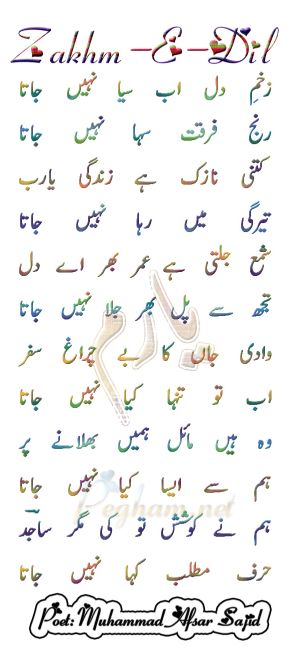 Zakhm-E-Dil
زخمِ دل اب سیا نہیں جاتا
رنج فرقت سہا نہیں جاتا
کتنی نازک ہے زندگی یارب
تیرگی میں رہا نہیں جاتا
شمع جلتی ہے عمر بھر اے دل
تجھ سے پل بھر جلا نہیں جاتا
وادی جاں کا بے چراغ سفر
اب تو تنہا کیا نہیں جاتا
وہ ہیں مائل ہمیں بھلانے پر
ہم سے ایسا کیا نہیں جاتا
ہم نے کوشش تو کی مگر ساجد
حرف مطلب کہا نہیں جاتا
یارم
Pegham.net
Poet: Muhammad Afsar Sajid